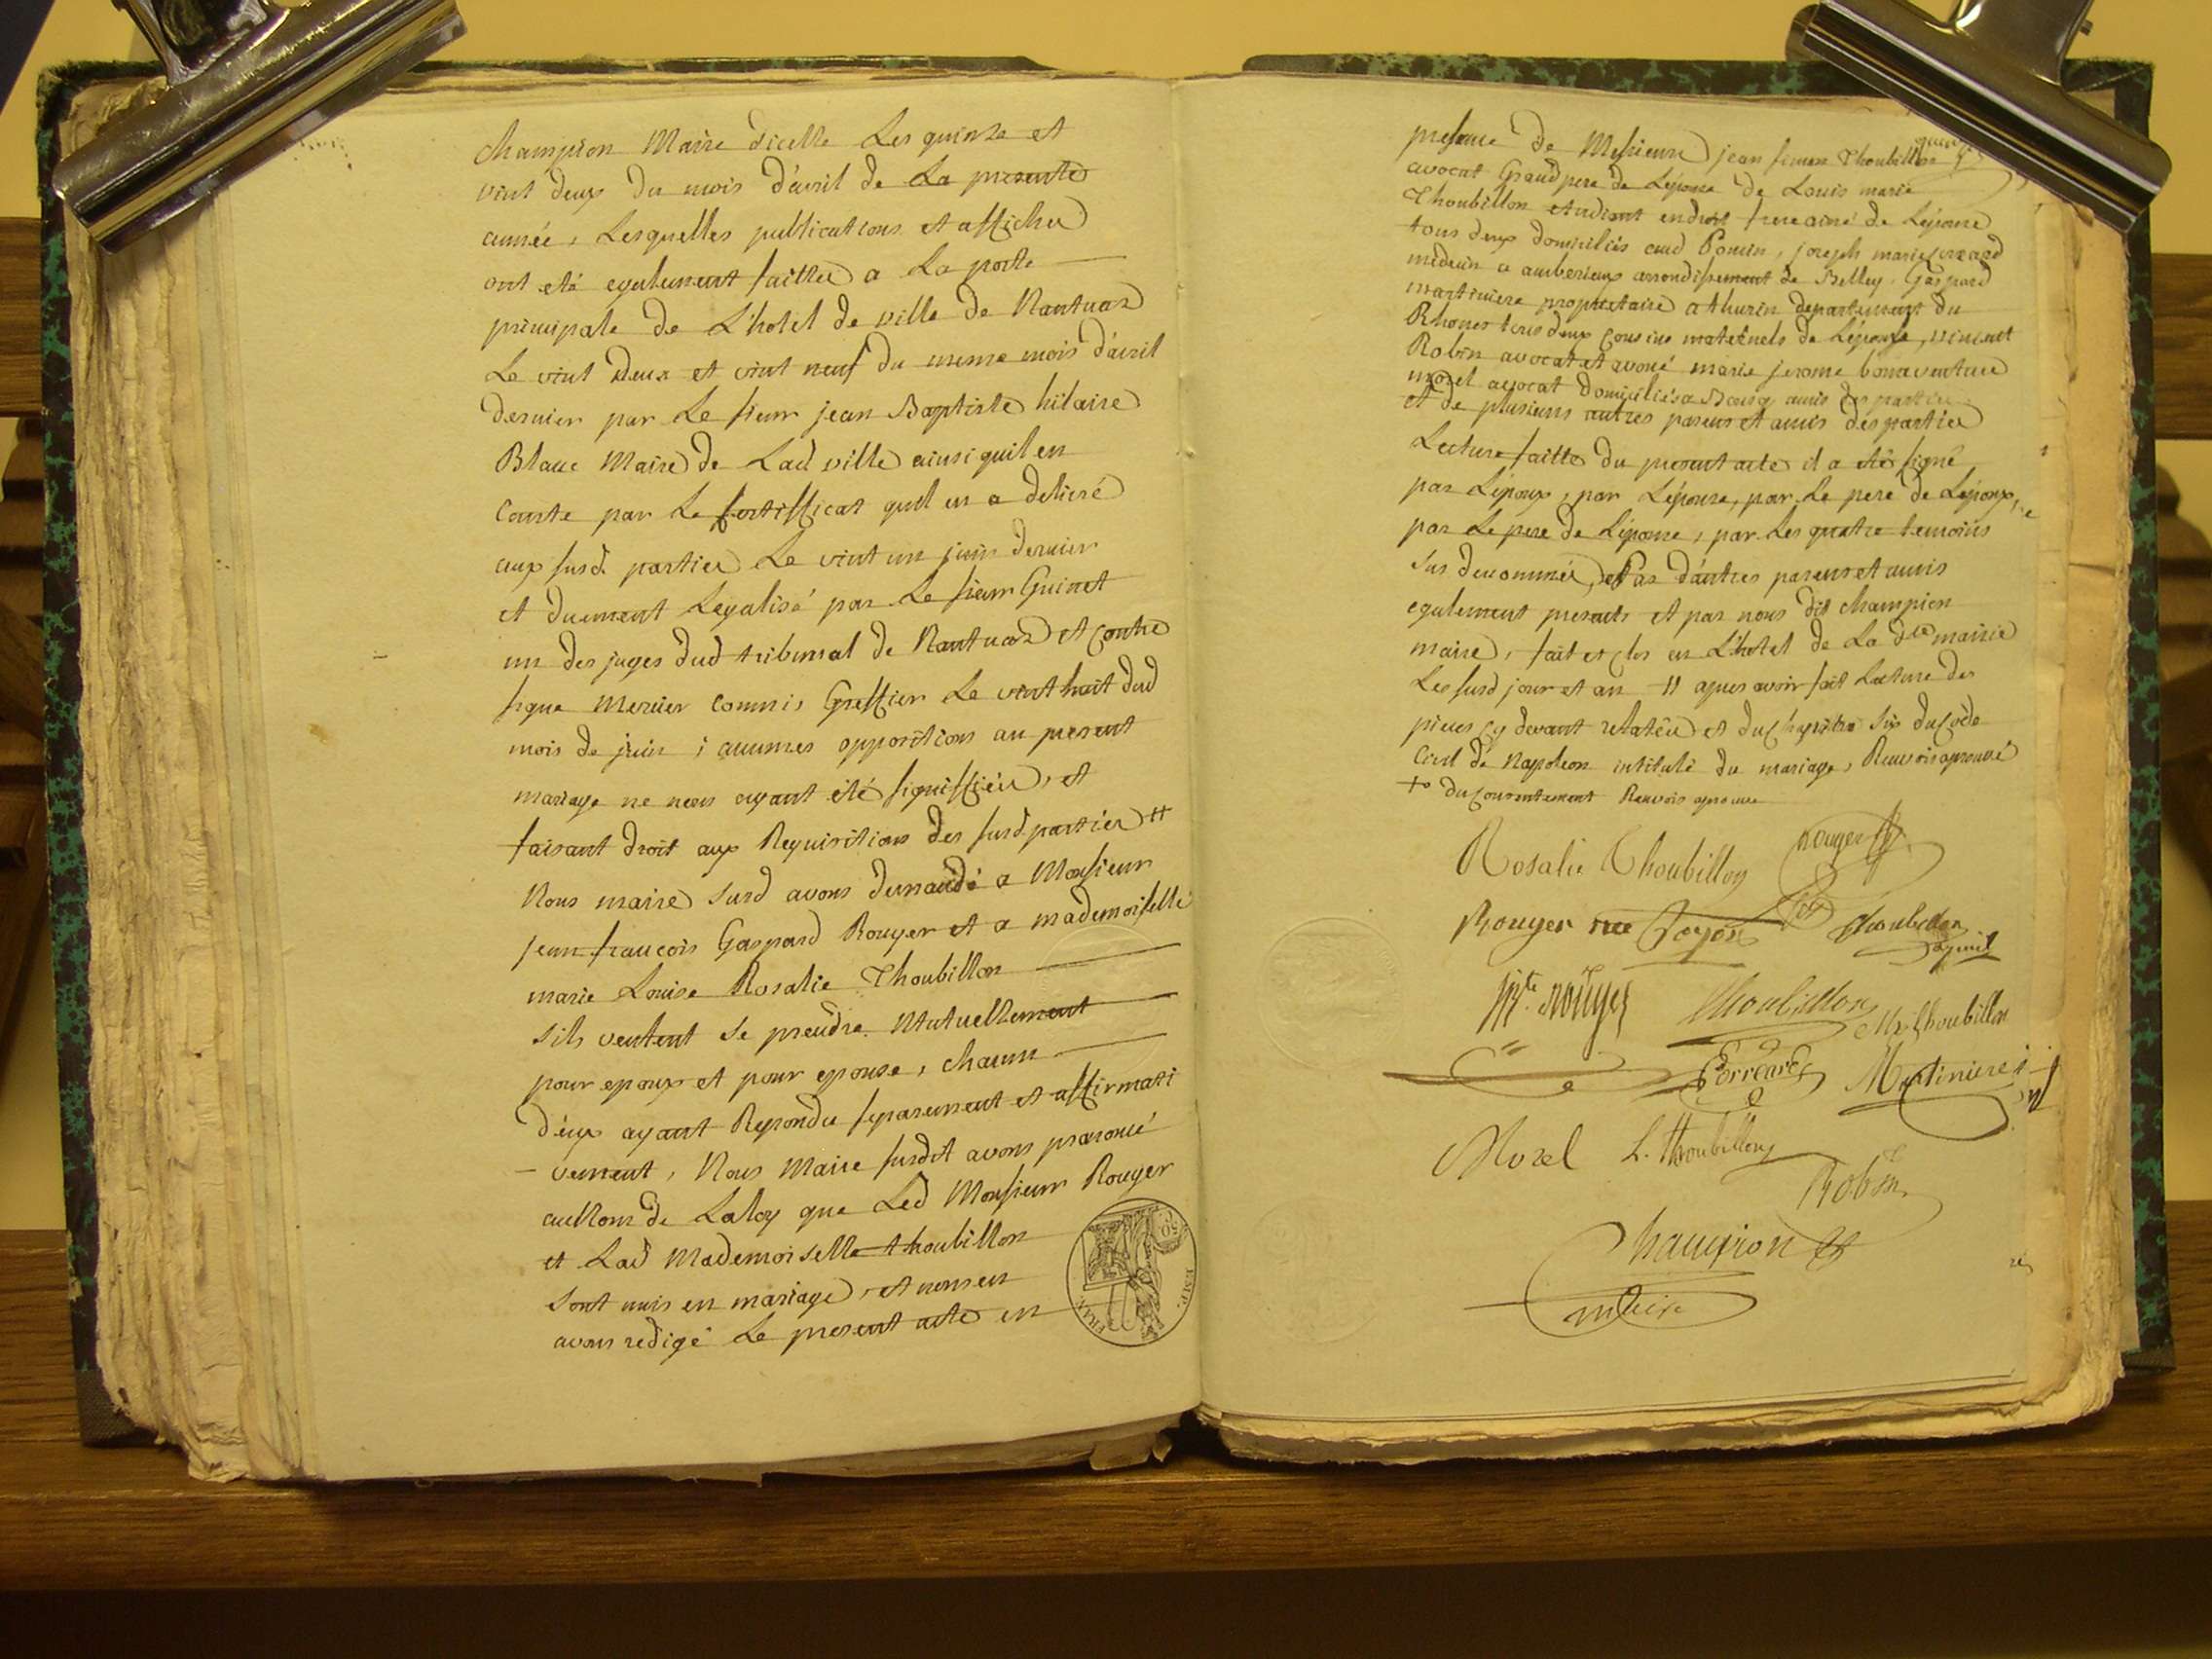 champion Maire d'icelle Les quinze et
vint deux du mois d'avril de La presente
année, Lesquelles publications et affiches
ont eté egalement faittes a La porte
principale de L'hotel de ville de Nantuaz
Le vint deux et vint neuf du meme mois d'avril
dernier par Le sieur jean Baptiste hilaire
Blanc Maire de Lad ville ainsi quil en
Conste par Le Certifficat quil en a delivré
aux susd. parties Le vint un juin dernier
et duement Legalisé par Le sieur Guinet
un des juges dud tribunal de Nantuaz et contre
signe Mercier Commis Greffier Le vint huit dud
mois de juin ; aucunes oppositions au present
mariage ne nous ayant été signiffiées, et
faisant droit aux Requisitions des susd. parties #
Nous maire susd avons demandé a Monsieur
jean francois Gaspard Rouyer et a mademoiselle
marie Louise Rosalie Thoubillon
sils veulent se prendre Mutuellement
pour epoux et pour epouse, chacun
d'eux ayant Repondu separement et affirmati
- vement, Nous Maire susdit avons prononcé
au Nom de La loy que Led Monsieur Rouyer
et Lad Mademoiselle thoubillon
sont unis en mariage, et nous en
avons redigé Le present acte en
presence de Messieurs jean simon Thoubillon
avocat Grand pere de Lépouse de Louis marie
Thoubillon etudiant en droit frere ainé de Lépouse
tous deux domiciliés aud Poncin, joseph marie
médecin a amberieux arrondissement de Belley, Gaspard
martiniere propriétaire a thurin departement du
Rhone tous deux Cousins maternels de Lépouse, vincent
Robin avocat et avoué marie jerome bonaventure
morel avocat Domiciliés a Bourg amis des parties
et de plusieurs autres parens et amis des parties
Lecture faitte du present acte il a eté signé
par L'epoux, par L'épouse, par Le pere de L'époux,
par Le pere de L'épouse, par Les quatre temoins
sus denommés, et Par d'autres parens et amis
egalement presents et par nous dit champion
maire, fait et clos en L'hotel de La dte mairie
Les susd jour et an # apres avoir fait Lecture des
pieces cy devant relatées et du Chapitre six du Code
Civil de Napoleon intitulé du mariage, Renvois aprouvé
+ du Consentement Renvois aprouvé
Rosalie Thoubillon Rouyer
Rouyer née Goyon Thoubillon
Mte. Rouyer Thoubillon M. Thoubillon
Ferrard Martiniere
Morel L. Thoubillon
Robin
Champion
maire
EMP. FRAN.